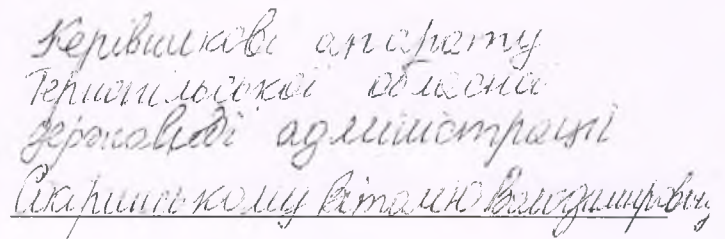 Керівникові апарату
Тернопільської обласної
державної адміністрації
Віталію Володимировичу